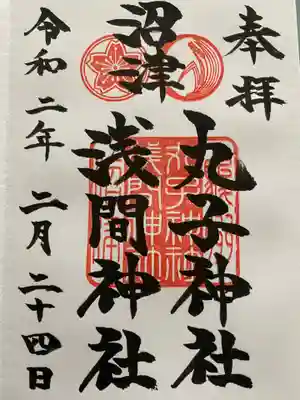 奉拝
沼津
丸子神社
浅間神社
令和二年 二月 二十四日